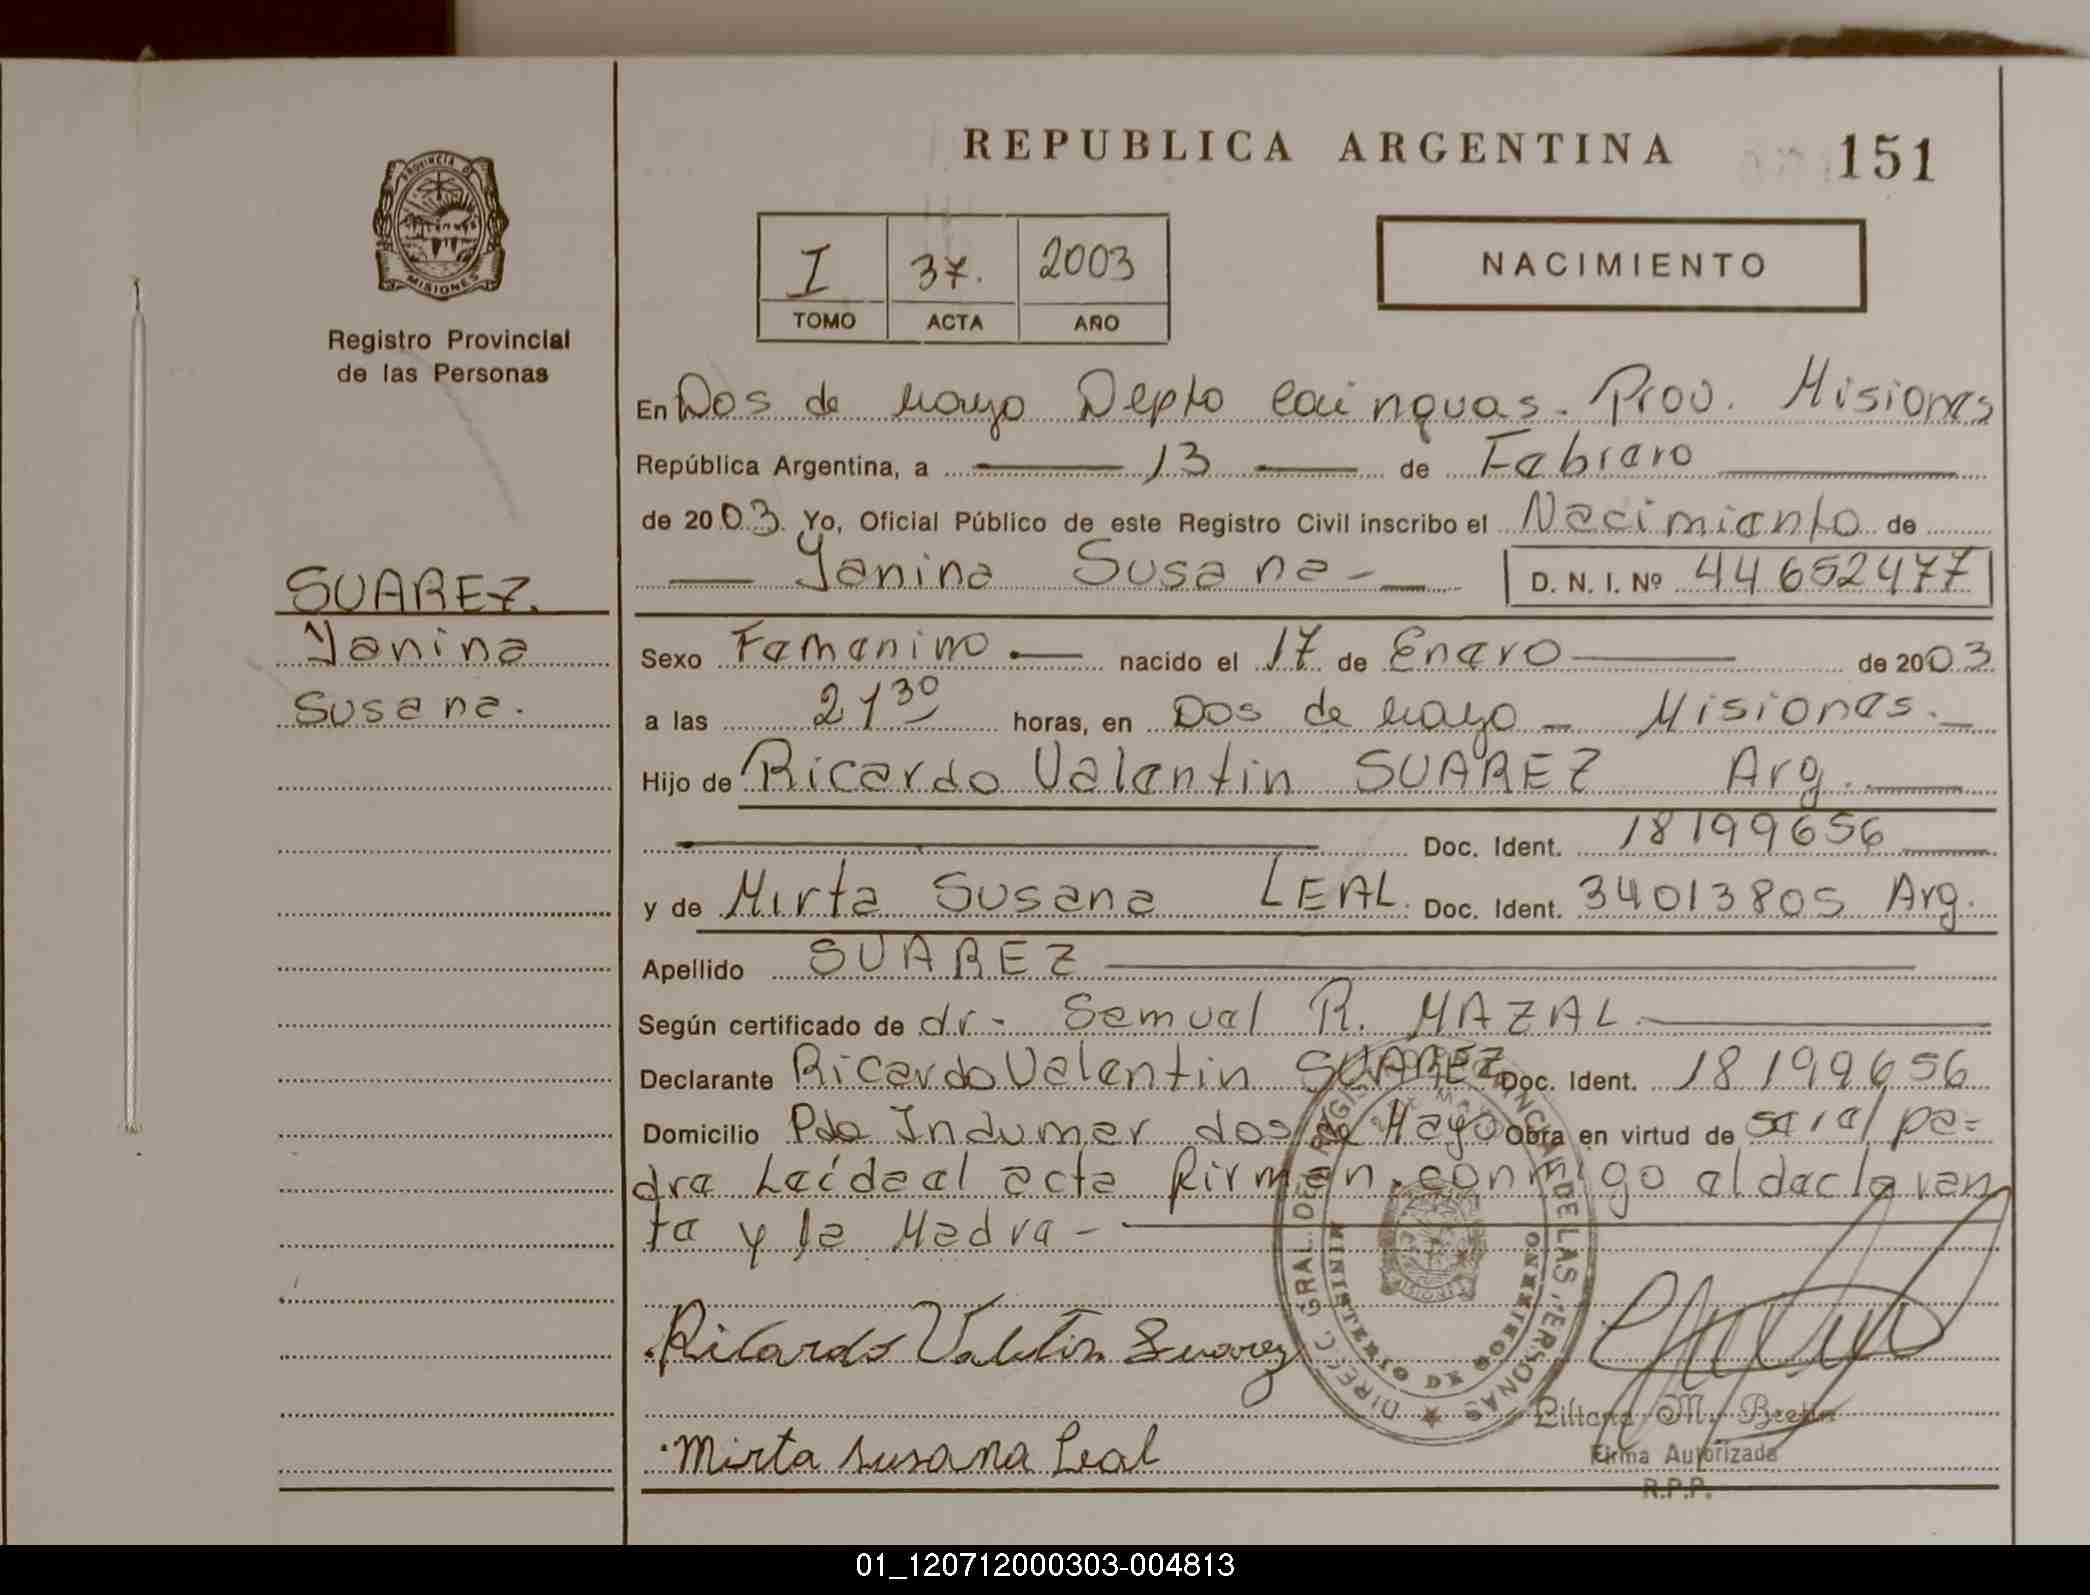 REPUBLICA ARGENTINA 151
PROVINCIA DE
MISIONES
Registro Provincial
de las Personas
I 37. 2003
TOMO ACTA AÑO
NACIMIENTO
En Dos de Mayo Depto Cainguas. Prov. Misiones
República Argentina, a 13 de Febrero
de 2003. Yo, Oficial Público de este Registro Civil inscribo el Nacimiento de
Yanina Susana - D. N. I. Nº 44652477
SUAREZ.
Yanina
Susana.
Sexo Femenino nacido el 17 de Enero de 2003
a las 21 30 horas, en Dos de Mayo - Misiones.
Hijo de Ricardo Valentin SUAREZ Arg.
Doc. Ident. 18199656
y de Mirta Susana LEAL. Doc. Ident. 34013805 Arg.
Apellido SUAREZ
Según certificado de dr - Samuel R. MAZAL.
Declarante Ricardo Valentin SUAREZ Doc. Ident. 18199656
Domicilio Pdo Indumar dos de Mayo Obra en virtud de ser el pa-
dre Leída el acta firman conmigo el declaran
te y la Madre -
Ricardo Suarez
Mirta Susana Leal
DIRECC. GRAL. DEL DE LAS PERSONAS
MINISTERIO DE GOBIERNO
Liliana M.
Firma Autorizada
R.P.P.
01_120712000303-004813